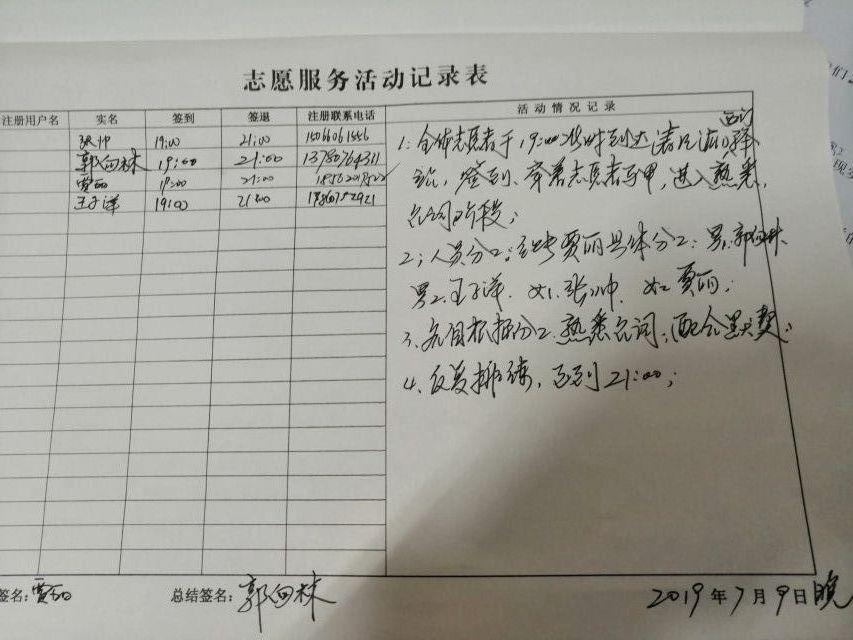 志愿服务活动记录表
注册用户名 实名 签到 签退 注册联系电话 活动情况记录
张帅 19:00 21:00 15066061556
郭向林 19:00 21:00 13780764311
贾丽 19:00 21:00
王子洋 19:00 21:00
1: 全体志愿者于19:00准时到达
站, 签到、穿着志愿者马甲, 进入熟悉
台词阶段;
2; 人员分工: 贾丽具体分工: 男1郭向林
男2王子洋. 女1张帅. 女2贾丽;
3、各自根据分工熟悉台词, 配合默契;
4、反复排练, 直到21:00;
签名: 贾丽 总结签名: 郭向林 2019年7月9日晚